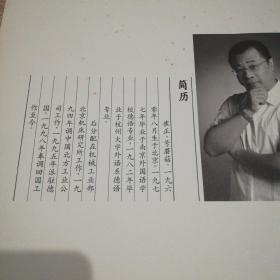 简历
崔正，号蘑菇，一九六
零年八月生于北京，一九七
七年毕业于南京外国语学
校德语专业，一九八二年毕
业于杭州大学外语系德语
专业。
后分配在机械工业部
北京机床研究所工作，一九
九四年调中国北方工业公
司工作，一九九五年派驻德
国，一九九八年奉调回国工
作至今。